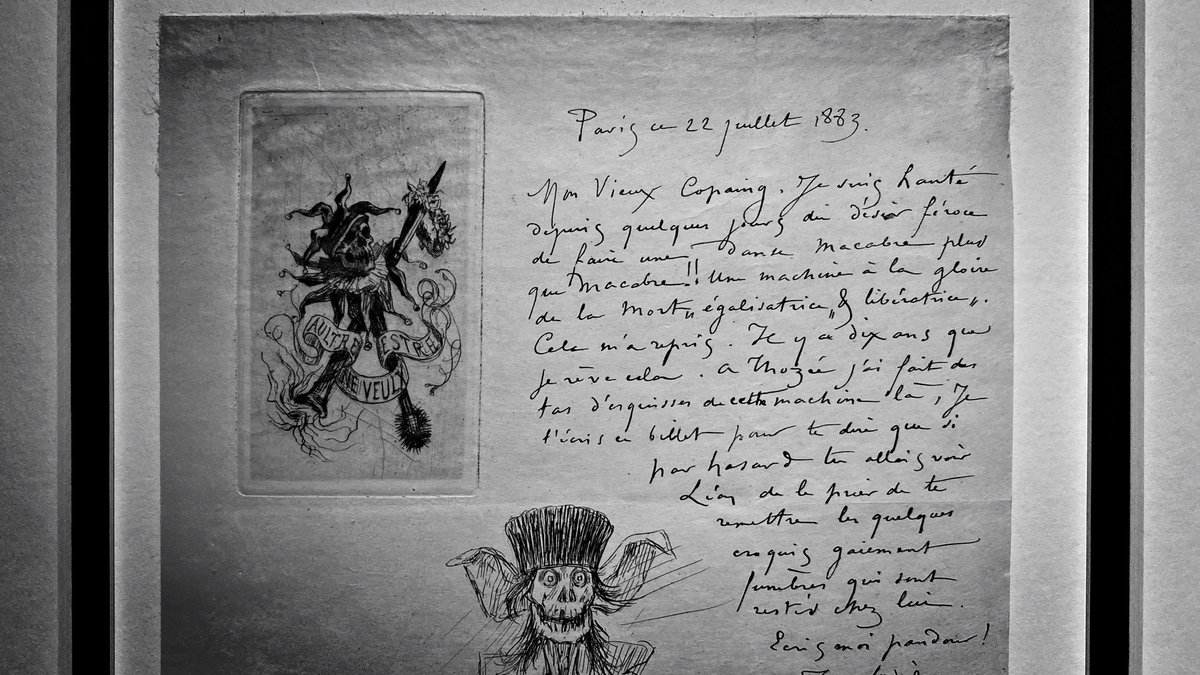 AULTRE
NE VEULX
ESTRE
Paris ce 22 juillet 1883.
Mon Vieux Copaing. Je suis hanté
depuis quelques jours du désir féroce
de faire une Danse Macabre plus
que Macabre!! Une machine à la gloire
de la Mort „égalisatrice„ & libératrice„.
Cela m'a repris. Il y a dix ans que
je rêve cela. A Thozée j'ai fait des
tas d'esquisses de cette machine là, Je
t'écris ce billet pour te dire que si
par hasard tu allais voir
Léon de le prier de te
remettre les quelques
croquis gaiement
funèbres qui sont
restés chez lui.
Ecris moi pandour!